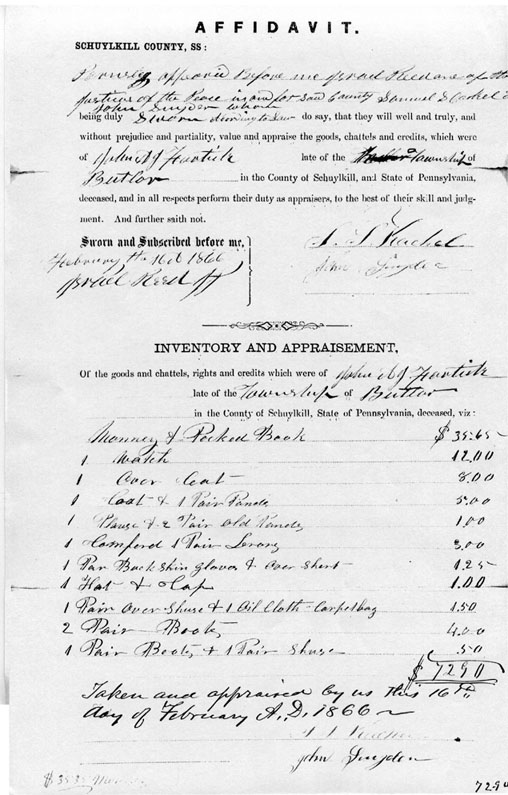 AFFIDAVIT.
SCHUYLKILL COUNTY, SS:
appeard Before me Israel Reed one of the
Justices of the Peace in and for Said County Samuel S Kachel &
John Snyder whom
being duly Sworn according to Law do say, that they will well and truly, and
without prejudice and partiality, value and appraise the goods, chattels and credits, which were
of John A J late of the Township of
Butler in the County of Schuylkill, and State of Pennsylvania,
deceased, and in all respects perform their duty as appraisers, to the best of their skill and judg-
ment. And further saith not.
Sworn and Subscribed before me,
February th 16d 1866
Israel Reed
S. S. Kachel
John Snyder
INVENTORY AND APPRAISEMENT,
Of the goods and chattels, rights and credits which were of John A J
late of the Township of Butler
in the County of Schuylkill, State of Pennsylvania, deceased, viz:
Monney & Pocked Book $ 35.65
1 Watch 12.00
1 Over Coat 8.00
1 Coat & 1 Pair Pands 5.00
1 & 2 Pair Old Pands 1.00
1 Comford 1 Pair 3.00
1 Par Buckskin gloves & Over Shert 1.25
1 Hat & Cap 1.00
1 Pair Over Shuse & 1 Oil Cloth Carpetbag 1.50
2 Pair Boots 4.00
1 Pair Boots & 1 Pair Shuse .50
$ 72.90
Taken and appraised by us this 16th
day of February A.D. 1866
S. S. Kachel
John Snyder
72.90